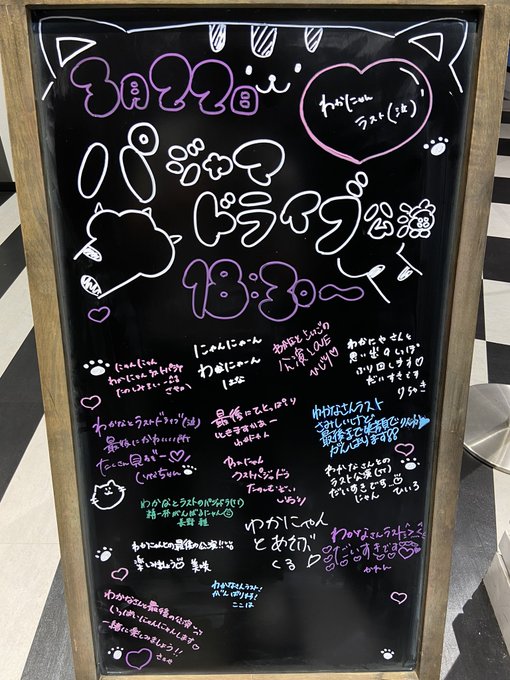 3月22日
わかにゃん
ラスト(泣)
パジャマ
ドライブ公演
18:30〜
にゃんにゃん
わかにゃんラストパジャド
にゃんにゃーん
わかにゃーん
はな
わかなといちごの
公演LOVE
ひじり♡
わかなさんと
思い出のいっぱい
ふり回します♡
だいすきです
りらき
わかなとラストドライブ(泣)
最後にかわいい所
たくさん見るぞー♡
最後にひとっぱしり
いきますかあー
わかなさんラスト
さみしいけど
最後まで笑顔で
がんばります
わかにゃん
ラストパジャドラ
たのしむぞい
わかなさんとの
ラスト公演(泣)
だいすきです♡
じゃん
ひいろ
わかなとラストのパジャドラ(泣)
精一杯がんばるにゃん
長野 雅
わかにゃんとの最後の公演!!
楽しみましょう♡ 美咲
わかにゃん
とあそぶ
くる
わかなさんラスト
だいすきです
かれん
わかなさんラスト!
がんばります!
ここは
わかなさんと最後の公演
いっぱいにゃんにゃんします♡
一緒に楽しみましょう!!